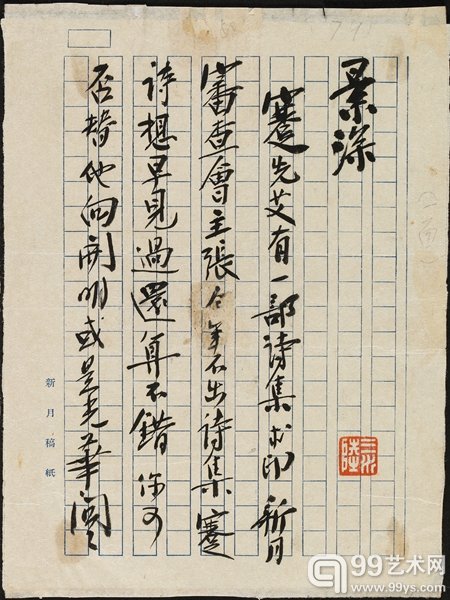 景深
蹇先艾有一部詩集求印 新月
審查會主張今年不出詩集蹇
詩想早見過還算不錯 你可
否替他向開明或是光華問々
新月稿紙
99艺术网
www.99ys.com